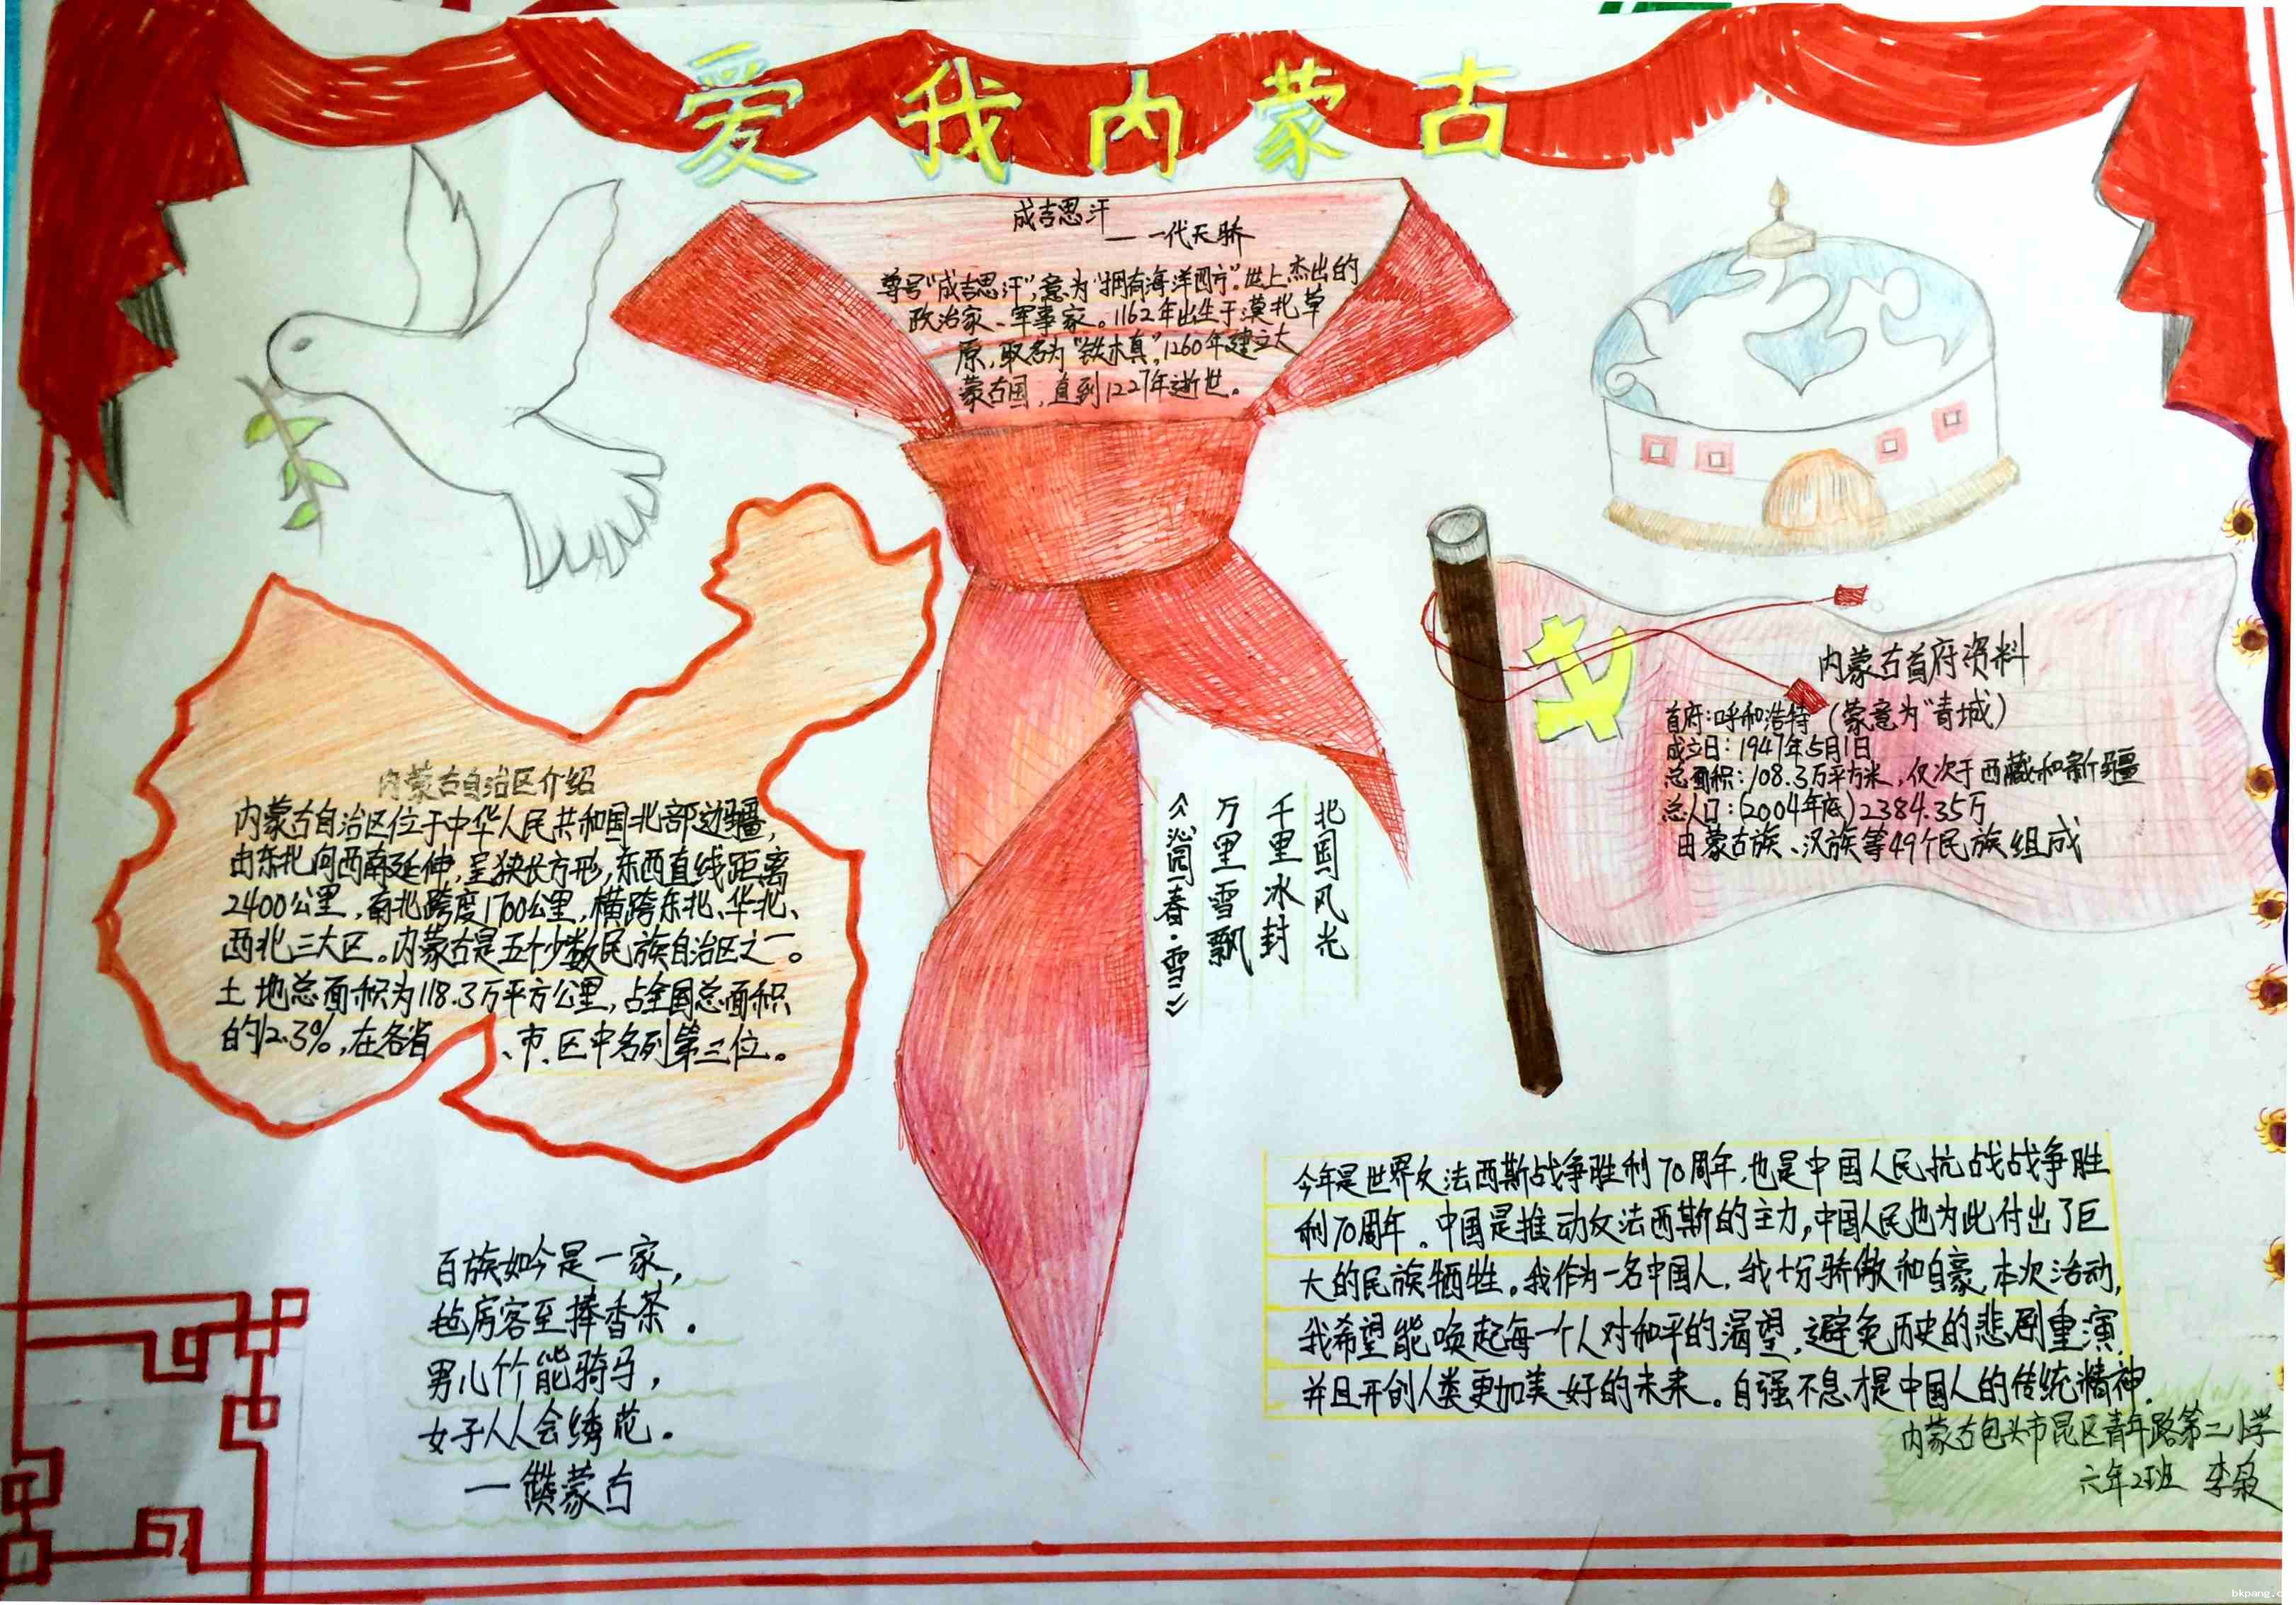 爱我内蒙古
成吉思汗
——一代天骄
尊号"成吉思汗",意为"拥有海洋四方"。世上杰出的
政治家、军事家。1162年出生于漠北草
原,取名为"铁木真",1260年建立大
蒙古国,直到1227年逝世。
内蒙古自治区介绍
内蒙古自治区位于中华人民共和国北部边疆,
由东北向西南延伸,呈狭长方形,东西直线距离
2400公里,南北跨度1700公里,横跨东北、华北、
西北三大区。内蒙古是五个少数民族自治区之一。
土地总面积为118.3万平方公里,占全国总面积
的12.3%,在各省、市、区中名列第三位。
北国风光
千里冰封
万里雪飘
《沁园春·雪》
内蒙古首府资料
首府:呼和浩特(蒙意为"青城)
成立日:1947年5月1日
总面积:108.3万平方米,仅次于西藏和新疆
总人口:(2004年底)2384.35万
由蒙古族、汉族等49个民族组成
百族如今是一家,
毡房客至捧香茶。
男儿个个能骑马,
女子人人会绣花。
—赞蒙古
今年是世界反法西斯战争胜利70周年,也是中国人民抗战战争胜
利70周年。中国是推动反法西斯的主力,中国人民也为此付出了巨
大的民族牺牲。我作为一名中国人,我十分骄傲和自豪,本次活动,
我希望能唤起每一个人对和平的渴望,避免历史的悲剧重演,
并且开创人类更加美好的未来。自强不息才是中国人的传统精神.
内蒙古包头市昆区青年路第二小学
六年2班 李泉
bkpang.c